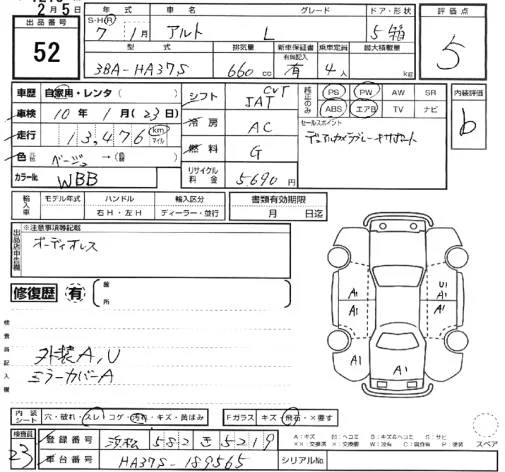 2月5日
出品番号 52
年式 S・H・R 7年 1月
車名 アルト
グレード L
ドア・形状 5 箱
評価点 5
型式 3BA-HA37S
排気量 660cc
新車保証書 有無記入 有
乗車定員 4人
最大積載量 kg
車歴 自家用・レンタ ( )
車検 10年 1月 (23日)
走行 13,476 km マイル
色 元色 ベージュ → (替色)
カラーNo. WBB
シフト CVT 5AT
冷房 AC
燃料 G
リサイクル料金 5,690円
純正のみ PS PW AW SR
ABS エアB TV ナビ
内装評価 b
セールスポイント
デュアルカメラブレーキサポート
輸入車 モデル年式 ハンドル 右H・左H 輸入区分 ディーラー・並行
書類有効期限 月 日迄
出品店申告欄 ※注意事項等記載
オーディオレス
修復歴 有 ( 箇所 )
検査員記入欄
外装A,U
ミラーカバーA
A1 A1 A1 U1 A1 A1 A1
内装シート 穴・破れ・スレ・コゲ・汚れ・キズ・黄ばみ
Fガラス キズ・飛石・×要す
検査員 23
登録番号 浜松 582 き 5219
車台番号 HA37S-189565
シリアルNo.
A：キズ E：エクボ B：キズ&ヘコミ S：サビ
××：交換済 ×：要交換 W：波 C：腐食 P：塗装
スペア